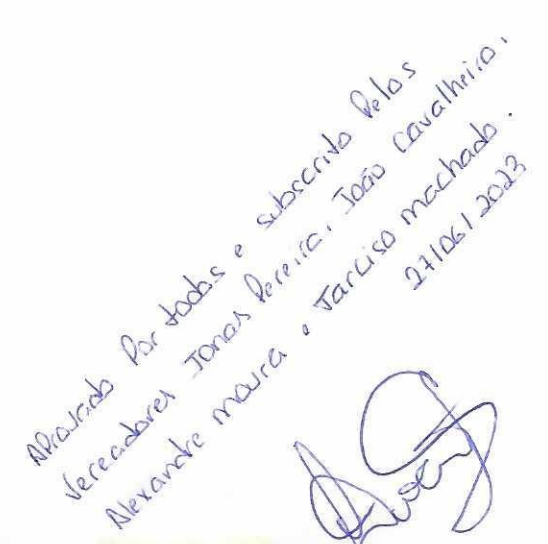 Aprovado Por todos e subscrito Pelos
Vereadores Jonas Pereira, João Cavalheiro,
Alexandre Moura e Tarciso Machado.
27/06/2023